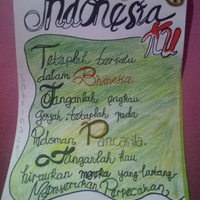 Indonesia
Ku
Tetaplah bersatu
dalam Bhineka
Janganlah engkau
goyah, tetaplah pada
Pedoman Pancasila.
Janganlah kau
hiraukan mereka yang lantang
Menyerukan Perpecahan